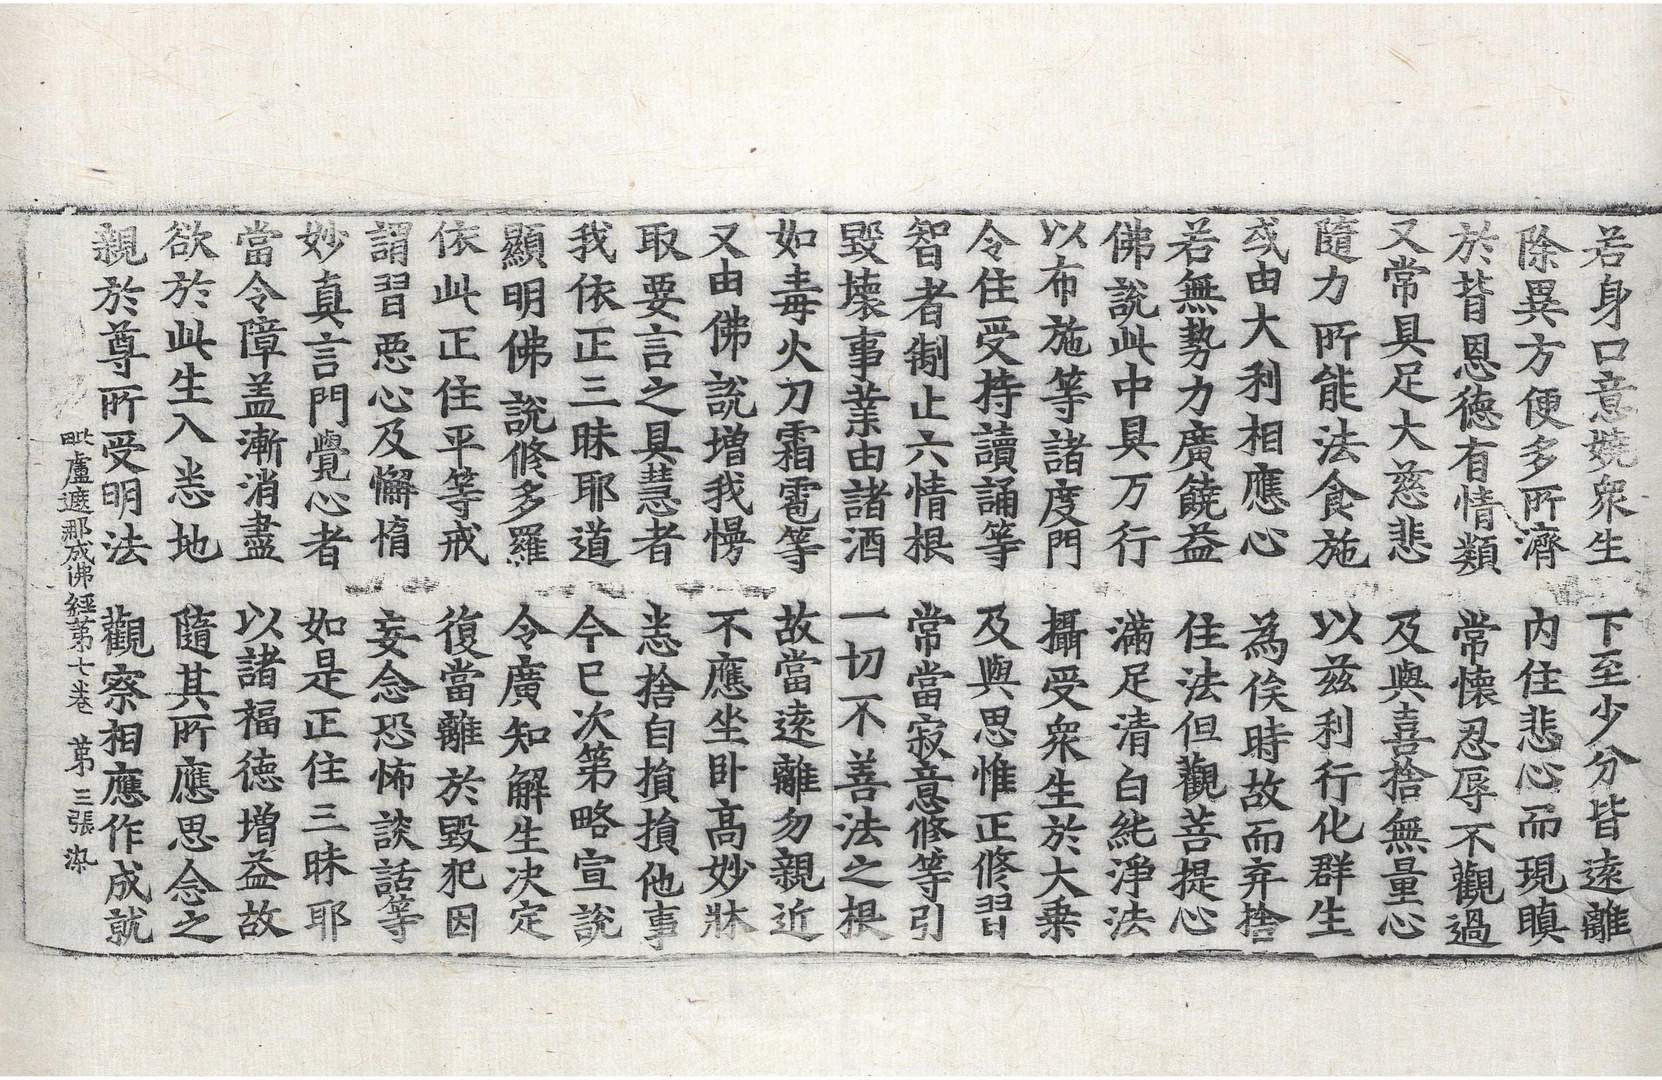 若身口意嬈衆生　下至少分皆遠離
除異方便多所濟　内住悲心而現瞋
於背恩德有情類　常懷忍辱不觀過
又常具足大慈悲　及與喜捨無量心
隨力所能法食施　以兹利行化群生
或由大利相應心　為俟時故而弃捨
若無勢力廣饒益　住法但觀菩提心
佛說此中具万行　滿足清白純淨法
以布施等諸度門　攝受衆生於大乗
令住受持讀誦等　及與思惟正修習
智者制止六情根　常當寂意修等引
毀壞事業由諸酒　一切不善法之根
如毒火刀霜雹等　故當遠離勿親近
又由佛說增我慢　不應坐卧高妙牀
取要言之具慧者　悉捨自損損他事
我依正三昧耶道　今已次第略宣說
顯明佛說修多羅　令廣知解生決定
依此正住平等戒　復當離於毀犯因
謂習惡心及懈惰　妄念恐怖談話等
妙真言門覺心者　如是正住三昧耶
當令障盖漸消盡　以諸福德增益故
欲於此生入悉地　隨其所應思念之
親於尊所受明法　觀察相應作成就
毗盧遮那成佛經第七卷　第三張　染